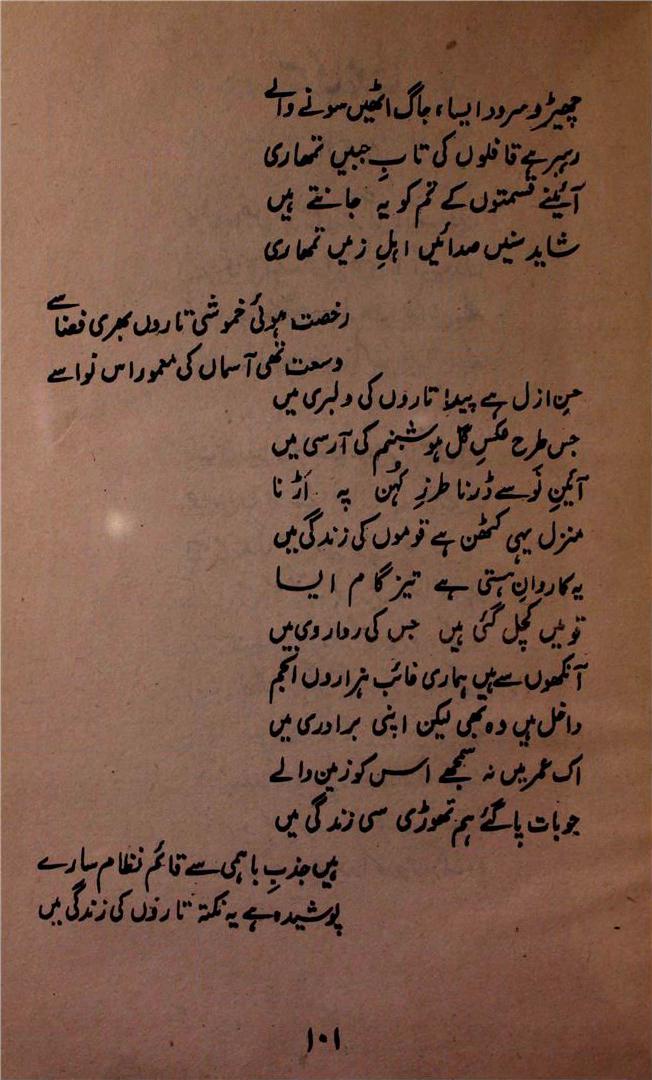 چھیڑو سرود ایسا، جاگ اٹھیں سونے والے
رہبر ہے قافلوں کی تابِ جبیں تمھاری
آئینے قسمتوں کے تم کو یہ جانتے ہیں
شاید سنیں صدائیں اہلِ زمیں تمھاری
رخصت ہوئی خموشی تاروں بھری فضا سے
وسعت تھی آسماں کی معمور اس نوا سے
حسنِ ازل ہے پیدا تاروں کی دلبری میں
جس طرح عکسِ گل ہو شبنم کی آرسی میں
آئینِ نَو سے ڈرنا طرزِ کُہن پہ اَڑنا
منزل یہی کٹھن ہے قوموں کی زندگی میں
یہ کاروانِ ہستی ہے تیز گام ایسا
قومیں کچل گئی ہیں جس کی رواروی میں
آنکھوں سے ہیں ہماری غائب ہزاروں انجم
داخل ہیں وہ بھی لیکن اپنی برادری میں
اک عمر میں نہ سمجھے اس کو زمین والے
جو بات پا گئے ہم تھوڑی سی زندگی میں
ہیں جذبِ باہمی سے قائم نظام سارے
پوشیدہ ہے یہ نکتہ تاروں کی زندگی میں
۱۰۱